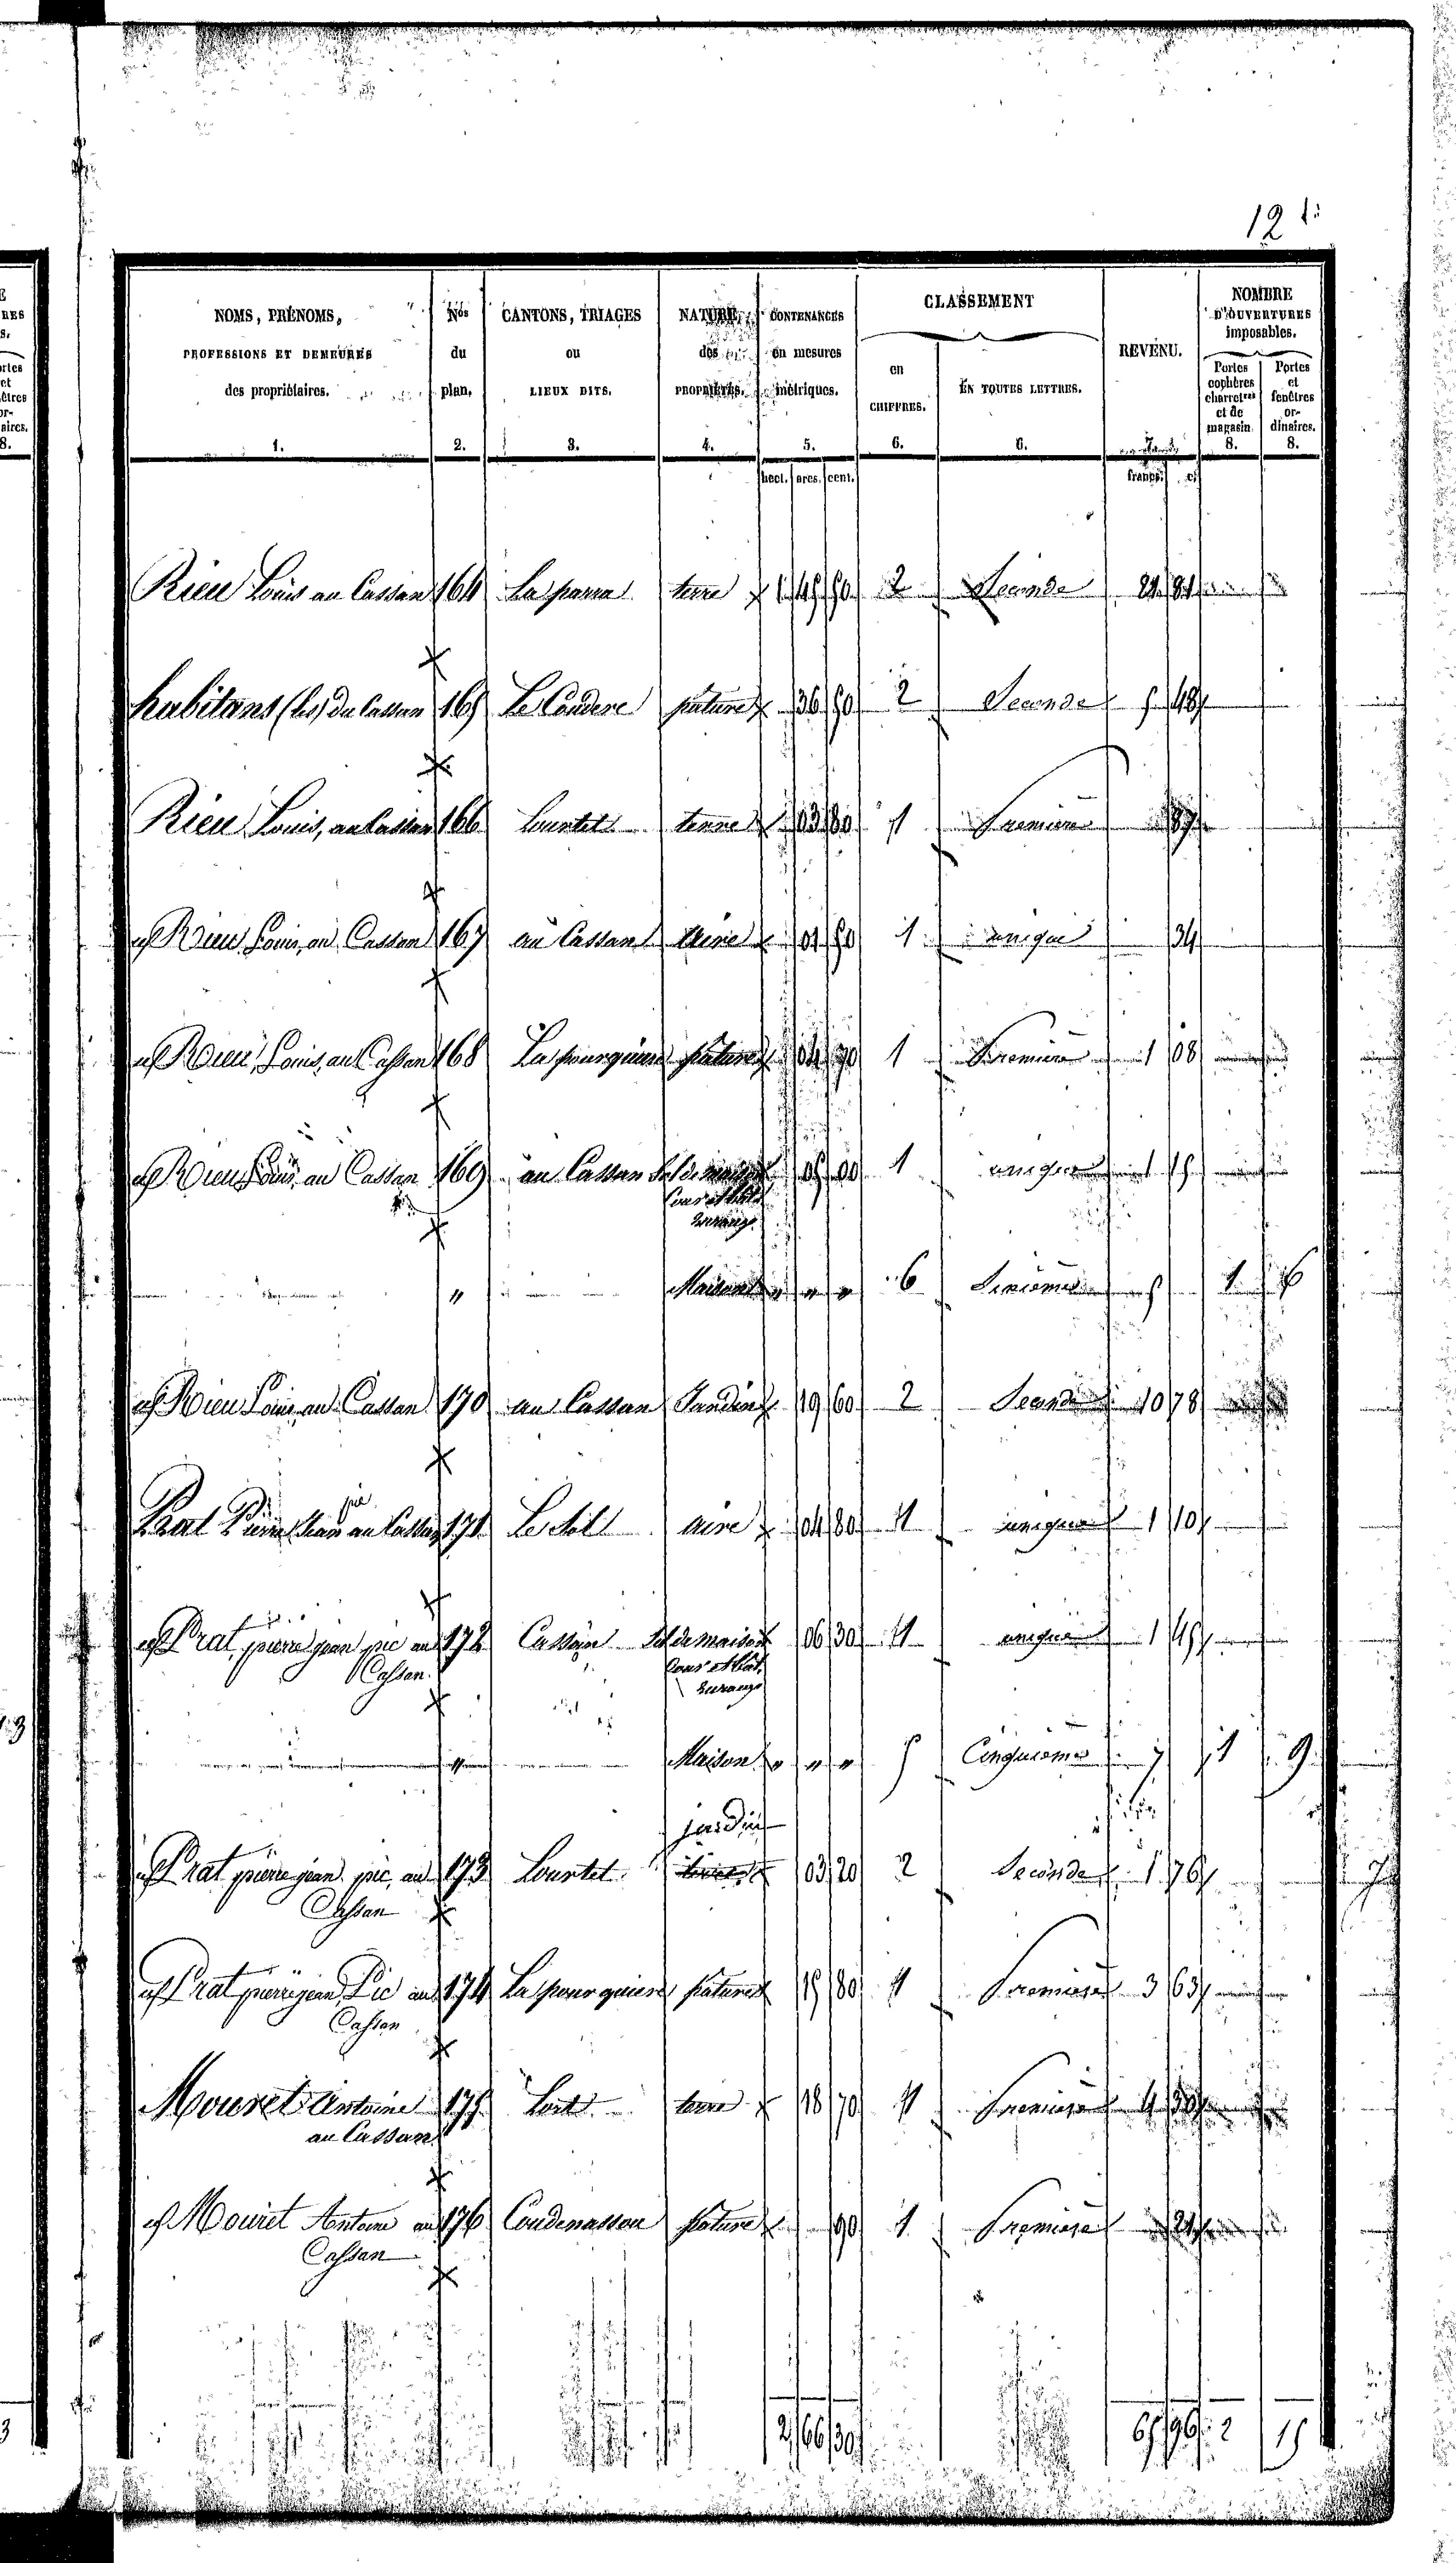 12
NOMS, PRÉNOMS, PROFESSIONS ET DEMEURES des propriétaires. 1.
Nos du plan. 2.
CANTONS, TRIAGES ou LIEUX DITS. 3.
NATURE des PROPRIÉTÉS. 4.
CONTENANCES en mesures métriques. 5.
CLASSEMENT
en CHIFFRES. 6.
EN TOUTES LETTRES. 6.
REVENU.
NOMBRE D'OUVERTURES imposables.
Portes cochères charretres et de magasin. 8.
Portes et fenêtres or-dinaires. 8.
hect. ares. cent. francs. c.
Rieu Louis au Cassan 164 La parra terre 2 Seconde
habitans (les) du Cassan 165 pature 36 50 2 Seconde 5 48
Rieu Louis, au Cassan 166 Lourtet terre 03 80 1 Premiere 87
Rieu Louis, au Cassan 167 au Cassan aire 01 50 1 unique 34
Rieu, Louis, au Cassan 168 pature 04 70 1 Premiere 1 08
Rieu Louis, au Cassan 169 au Cassan Sol de maison 1 unique 1 15
Cour et bat.
Maison 6 Sixieme 5 1 6
Rieu Louis, au Cassan 170 au Cassan Jardin 19 60 2 Seconde 10 78
Prat Pierre Jean pic au Cassan 171 Le Sol aire 04 80 1 unique 1 10
Prat, pierre jean pic au 172 Cassan Sol de maison 06 30 1 unique 1 45
Cassan. Cour et bat.
Maison 5 Cinquieme 7 1 9
jardin
Prat pierre jean pic, au 173 Lourtet 03 20 2 Seconde 1 76
Cassan
Prat pierre jean Pic au 174 pature 15 80 1 Premiere 3 63
Cassan
Mouret Antoine 175 terre 18 70 1 Premiere 4 30
au Cassan
Mouret Antoine au 176 Coudenassou pature 90 1 Premiere 21
Cassan
2 66 30 65 96 2 15